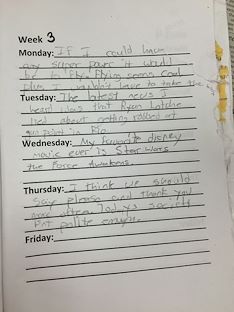 Week 3
Monday: If I could have
any super power it would
be to fly. Flying seems cool
plus I wouldn't have to take the
Tuesday: The latest news I
heard was that Ryan Lotche
lied about getting robbed at
gun point in Rio
Wednesday: My favorite disney
movie ever is Star Wars
the Force Awakens
Thursday: I think we should
say please and thank you
more often. Today's society
isnt polite enough.
Friday: